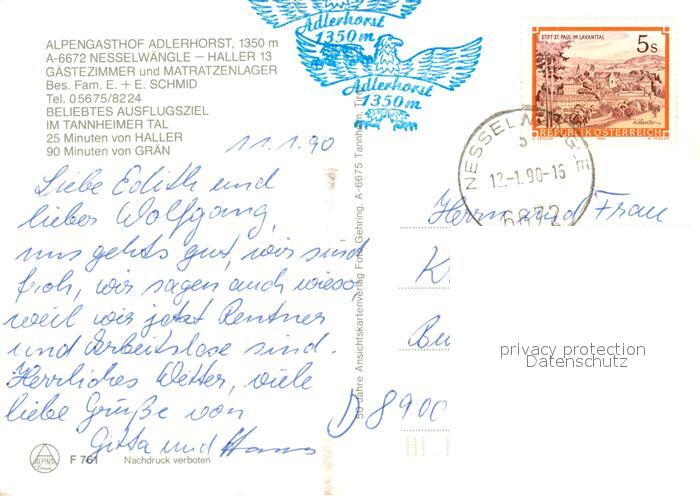 ALPENGASTHOF ADLERHORST, 1350 m
A-6672 NESSELWÄNGLE – HALLER 13
GÄSTEZIMMER und MATRATZENLAGER
Bes. Fam. E. + E. SCHMID
Tel. 05675/8224
BELIEBTES AUSFLUGSZIEL
IM TANNHEIMER TAL
25 Minuten von HALLER
90 Minuten von GRÄN
11.1.90
Liebe Edith und
lieber Wolfgang,
uns gehts gut, wir sind
froh, wir sagen auch wieso
weil wir jetzt Rentner
und Arbeitslose sind.
Herrliches Wetter, viele
liebe Grüße von
Gitta und Hans
ALPINA
F 761
Nachdruck verboten
50 Jahre Ansichtskartenverlag Foto Gehring, A-6675 Tannheim, Tirol
Adlerhorst
1350 m
Adlerhorst
1350 m
STIFT ST. PAUL IM LAVANTTAL
5 S
REPUBLIK ÖSTERREICH
NESSELWÄNGLE
12.-1.90-15
6672
Herrn und Frau
K
Bu
D 8900
privacy protection
Datenschutz